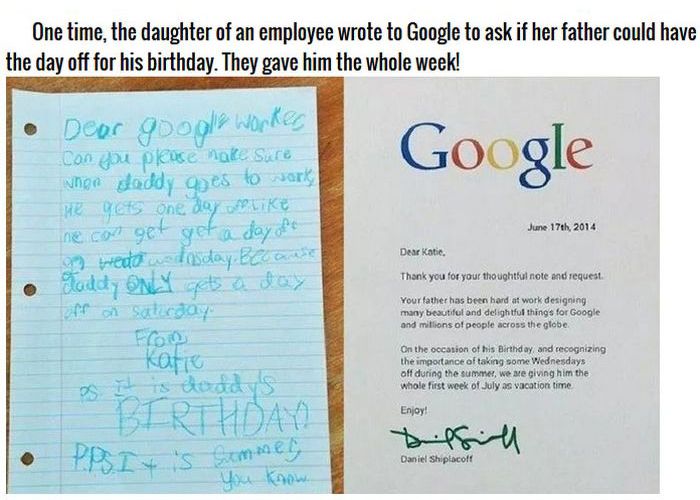 One time, the daughter of an employee wrote to Google to ask if her father could have
the day off for his birthday. They gave him the whole week!
Dear google worker
Can you please make sure
when daddy goes to work
He gets one day off. LIKE
he can get get a day off
on wednsday. Because
daddy ONLY gets a day
off on saturday.
From
Katie
PS It is daddy's
BIRTHDAY!
P.P.S. It is Summer
You Know
Google
June 17th, 2014
Dear Katie,
Thank you for your thoughtful note and request.
Your father has been hard at work designing
many beautiful and delightful things for Google
and millions of people across the globe.
On the occasion of his Birthday, and recognizing
the importance of taking some Wednesdays
off during the summer, we are giving him the
whole first week of July as vacation time.
Enjoy!
Daniel Shiplacoff